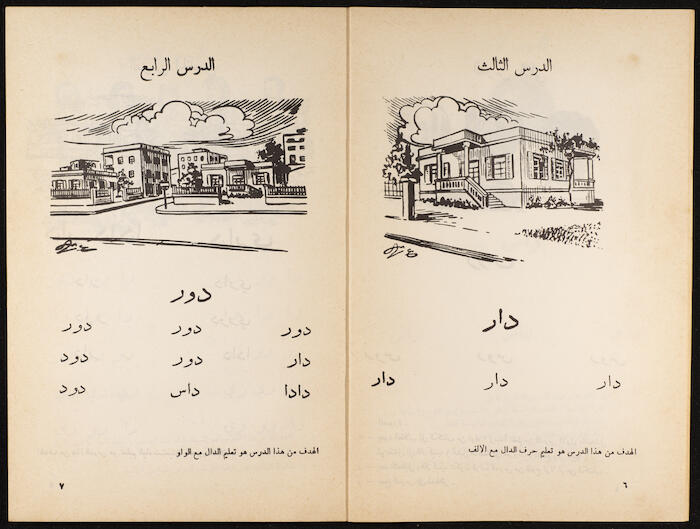 الدرس الثالث
دار
دار دار دار
الهدف من هذا الدرس هو تعليم حرف الدال مع الالف
٦
الدرس الرابع
دور
دور دور دور
دار دور دود
دادا داس دود
الهدف من هذا الدرس هو تعليم الدال مع الواو
٧